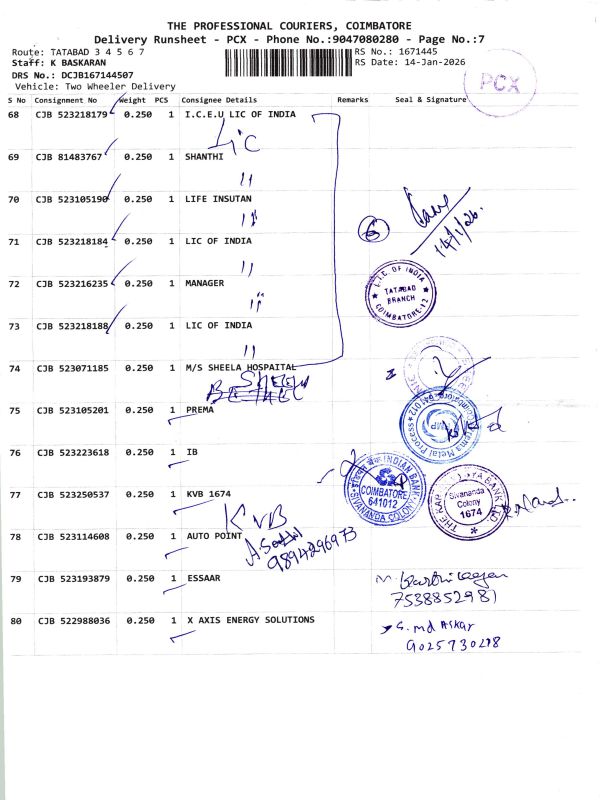 THE PROFESSIONAL COURIERS, COIMBATORE
Delivery Runsheet - PCX - Phone No.:9047080280 - Page No.:7
Route: TATABAD 3 4 5 6 7
RS No.: 1671445
Staff: K BASKARAN
RS Date: 14-Jan-2026
DRS No.: DCJB167144507
Vehicle: Two Wheeler Delivery
PCX
S No Consignment No Weight PCS Consignee Details Remarks Seal & Signature
68 CJB 523218179 0.250 1 I.C.E.U LIC OF INDIA
LIC
69 CJB 81483767 0.250 1 SHANTHI
11
70 CJB 523105190 0.250 1 LIFE INSUTAN
11
6
14/1/26
71 CJB 523218184 0.250 1 LIC OF INDIA
11
72 CJB 523216235 0.250 1 MANAGER
11
L.I.C. OF INDIA
TATABAD
BRANCH
COIMBATORE-12
73 CJB 523218188 0.250 1 LIC OF INDIA
11
74 CJB 523071185 0.250 1 M/S SHEELA HOSPAITAL
75 CJB 523105201 0.250 1 PREMA
76 CJB 523223618 0.250 1 IB
INDIAN BANK
COIMBATORE
641012
SIVANANDA COLONY
77 CJB 523250537 0.250 1 KVB 1674
KVB
Sivananda
Colony
1674
78 CJB 523114608 0.250 1 AUTO POINT
9894296973
79 CJB 523193879 0.250 1 ESSAAR
7538852981
80 CJB 522988036 0.250 1 X AXIS ENERGY SOLUTIONS
S. md ASKAR